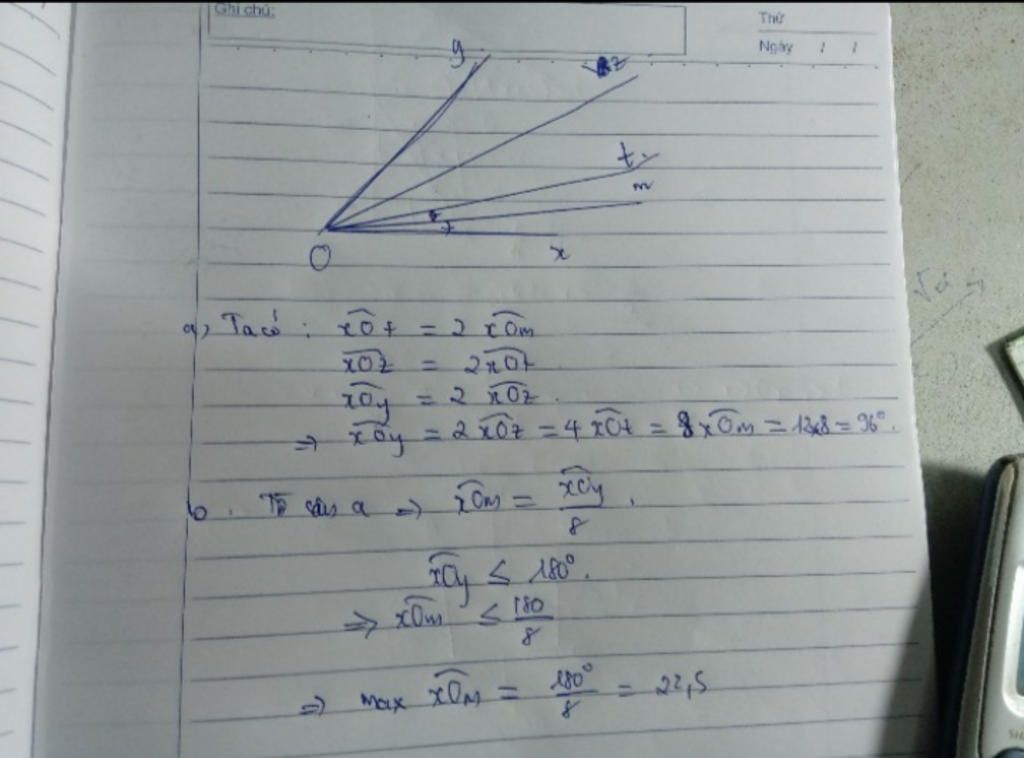 Ghi chú:
Thứ
Ngày / /
y
z
t
m
O
x
a, Ta có : xÔt = 2 xÔm
xÔz = 2 xÔt
xÔy = 2 xÔz .
=> xÔy = 2 xÔz = 4 xÔt = 8 xÔm = 12x8 = 96° .
b . Từ câu a => xÔm = xÔy / 8 .
xÔy ≤ 180° .
=> xÔm ≤ 180 / 8
=> max xÔm = 180° / 8 = 22,5